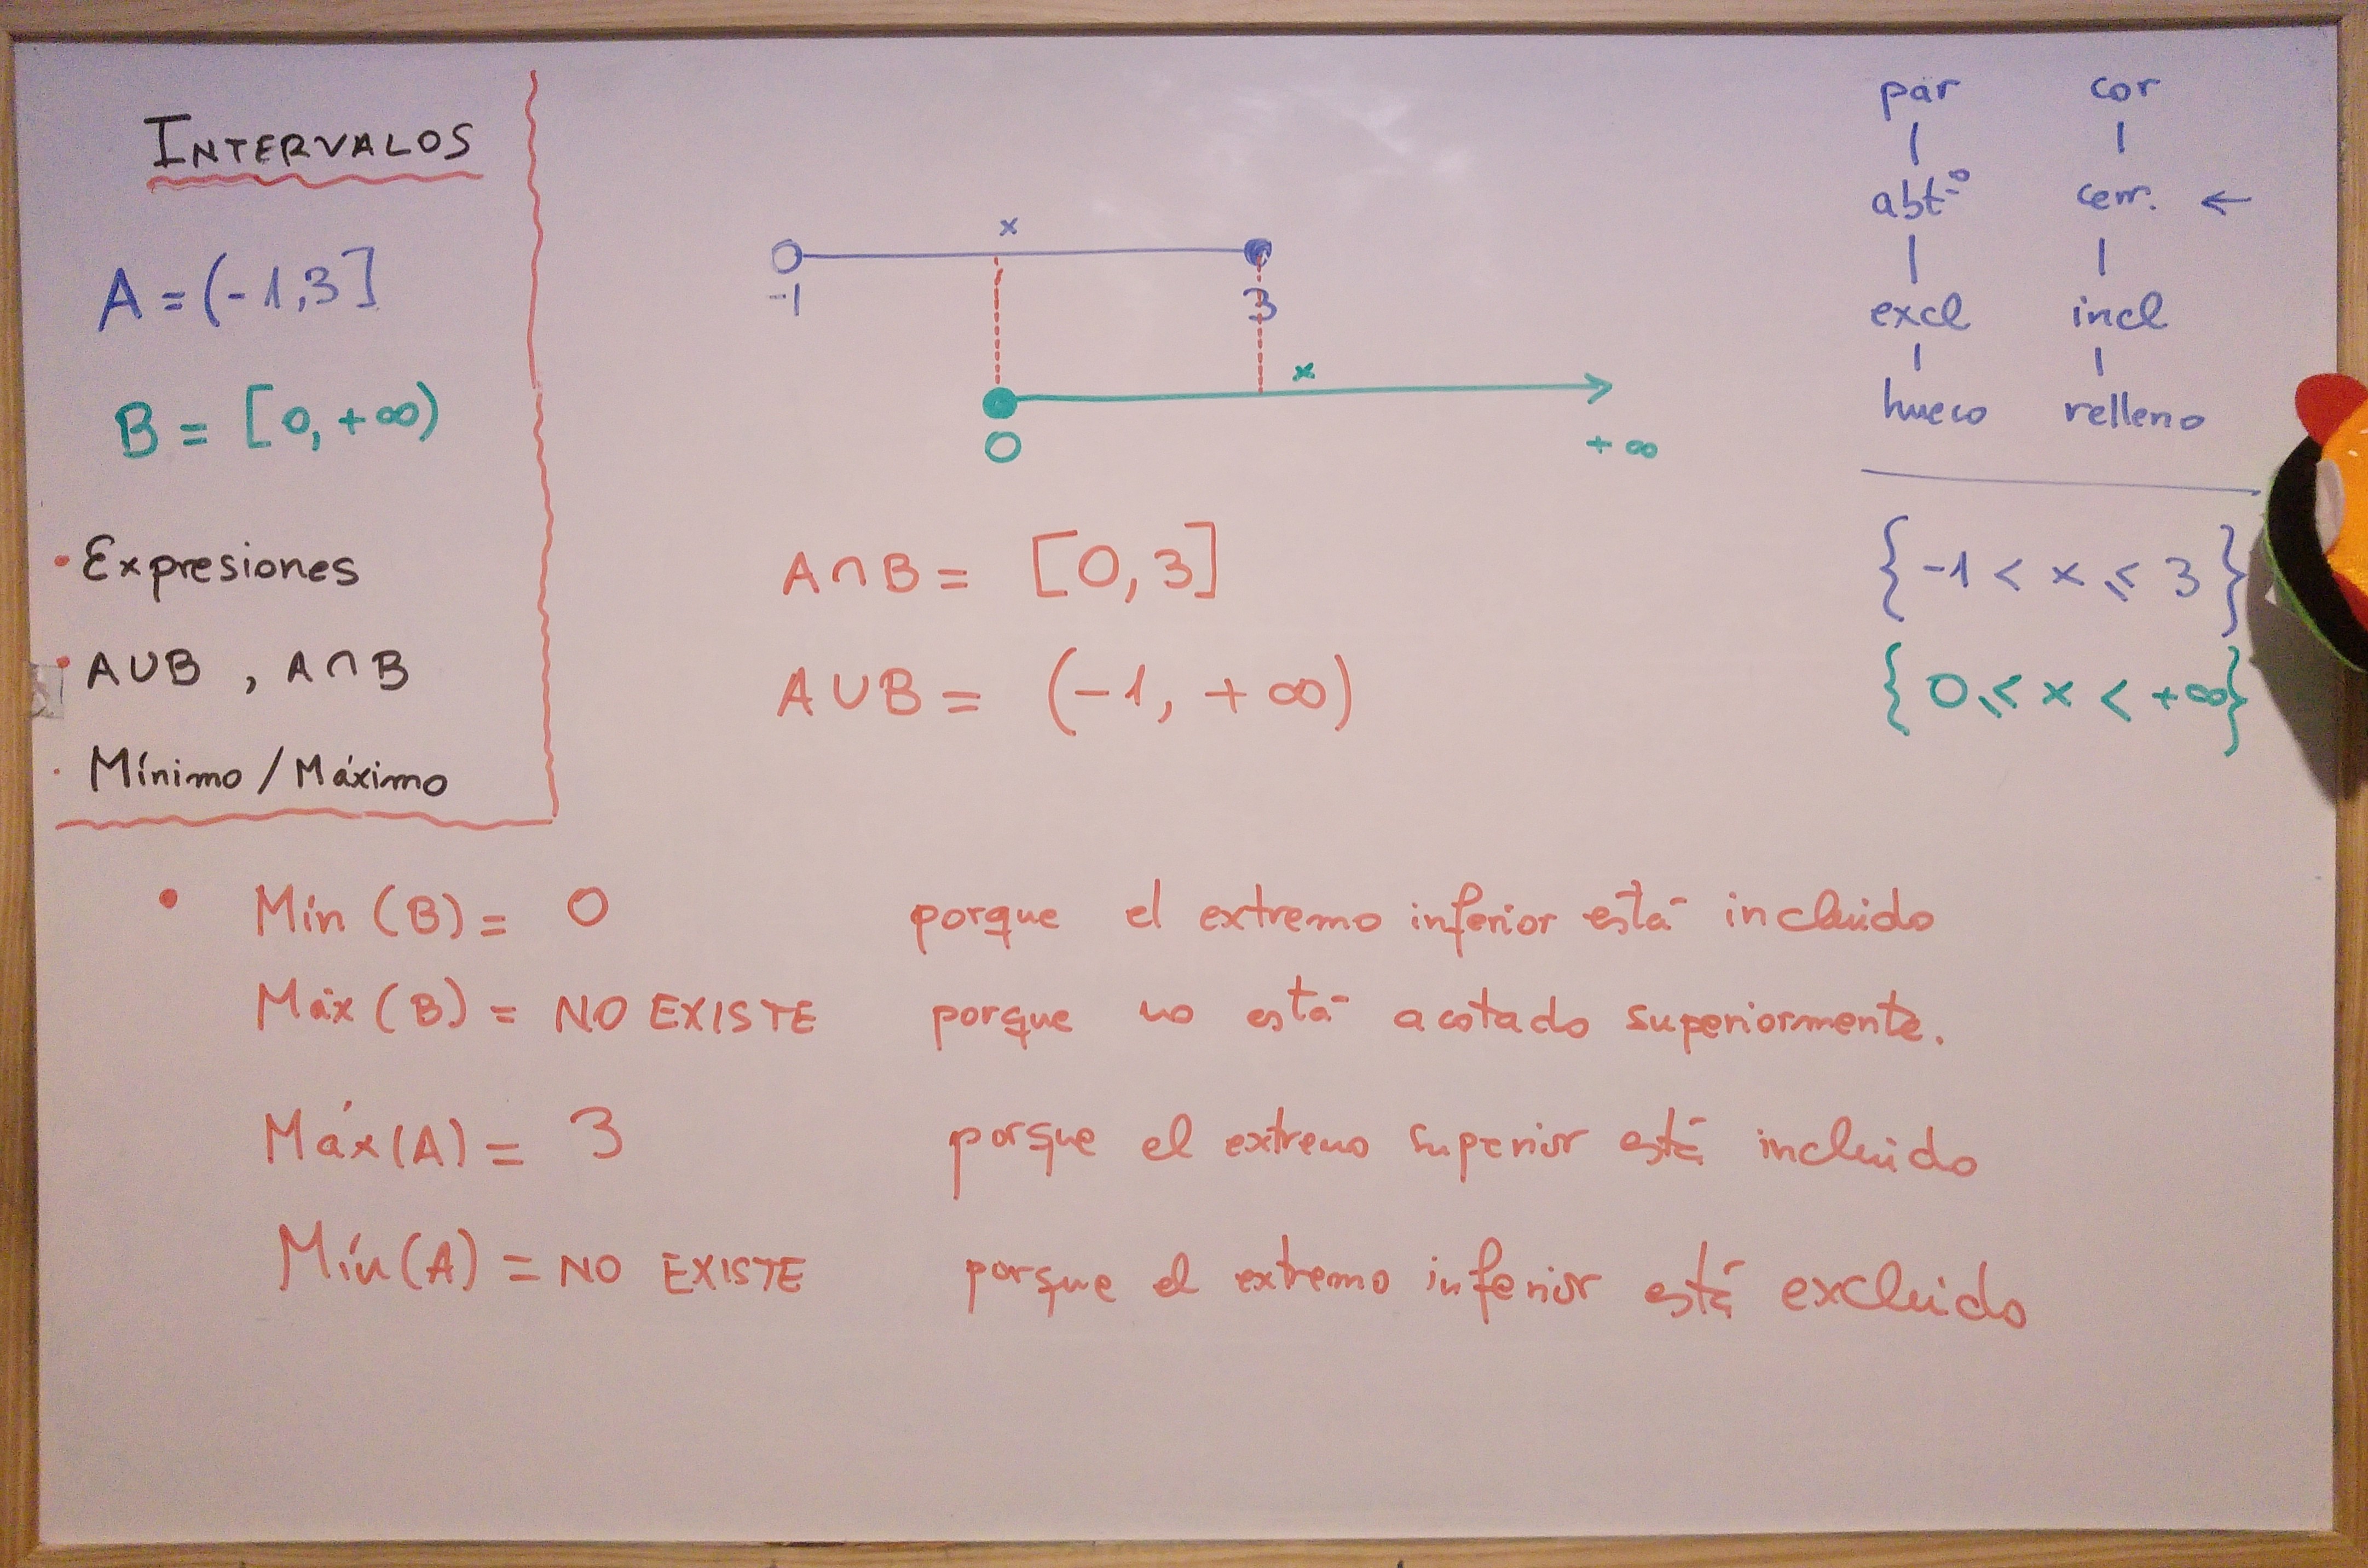 INTERVALOS
A = (-1,3]
B = [0,+∞)
• Expresiones
• A∪B , A∩B
• Mínimo / Máximo
x
-1 3
x
0 +∞
A∩B = [0,3]
A∪B = (-1, +∞)
par cor
abt.º cerr. ←
excl incl
hueco relleno
{-1 < x ⩽ 3}
{0 ⩽ x < +∞}
• Mín (B) = 0 porque el extremo inferior está incluido
Máx (B) = NO EXISTE porque no está acotado superiormente.
Máx(A) = 3 porque el extremo superior está incluido
Mín(A) = NO EXISTE porque el extremo inferior está excluido